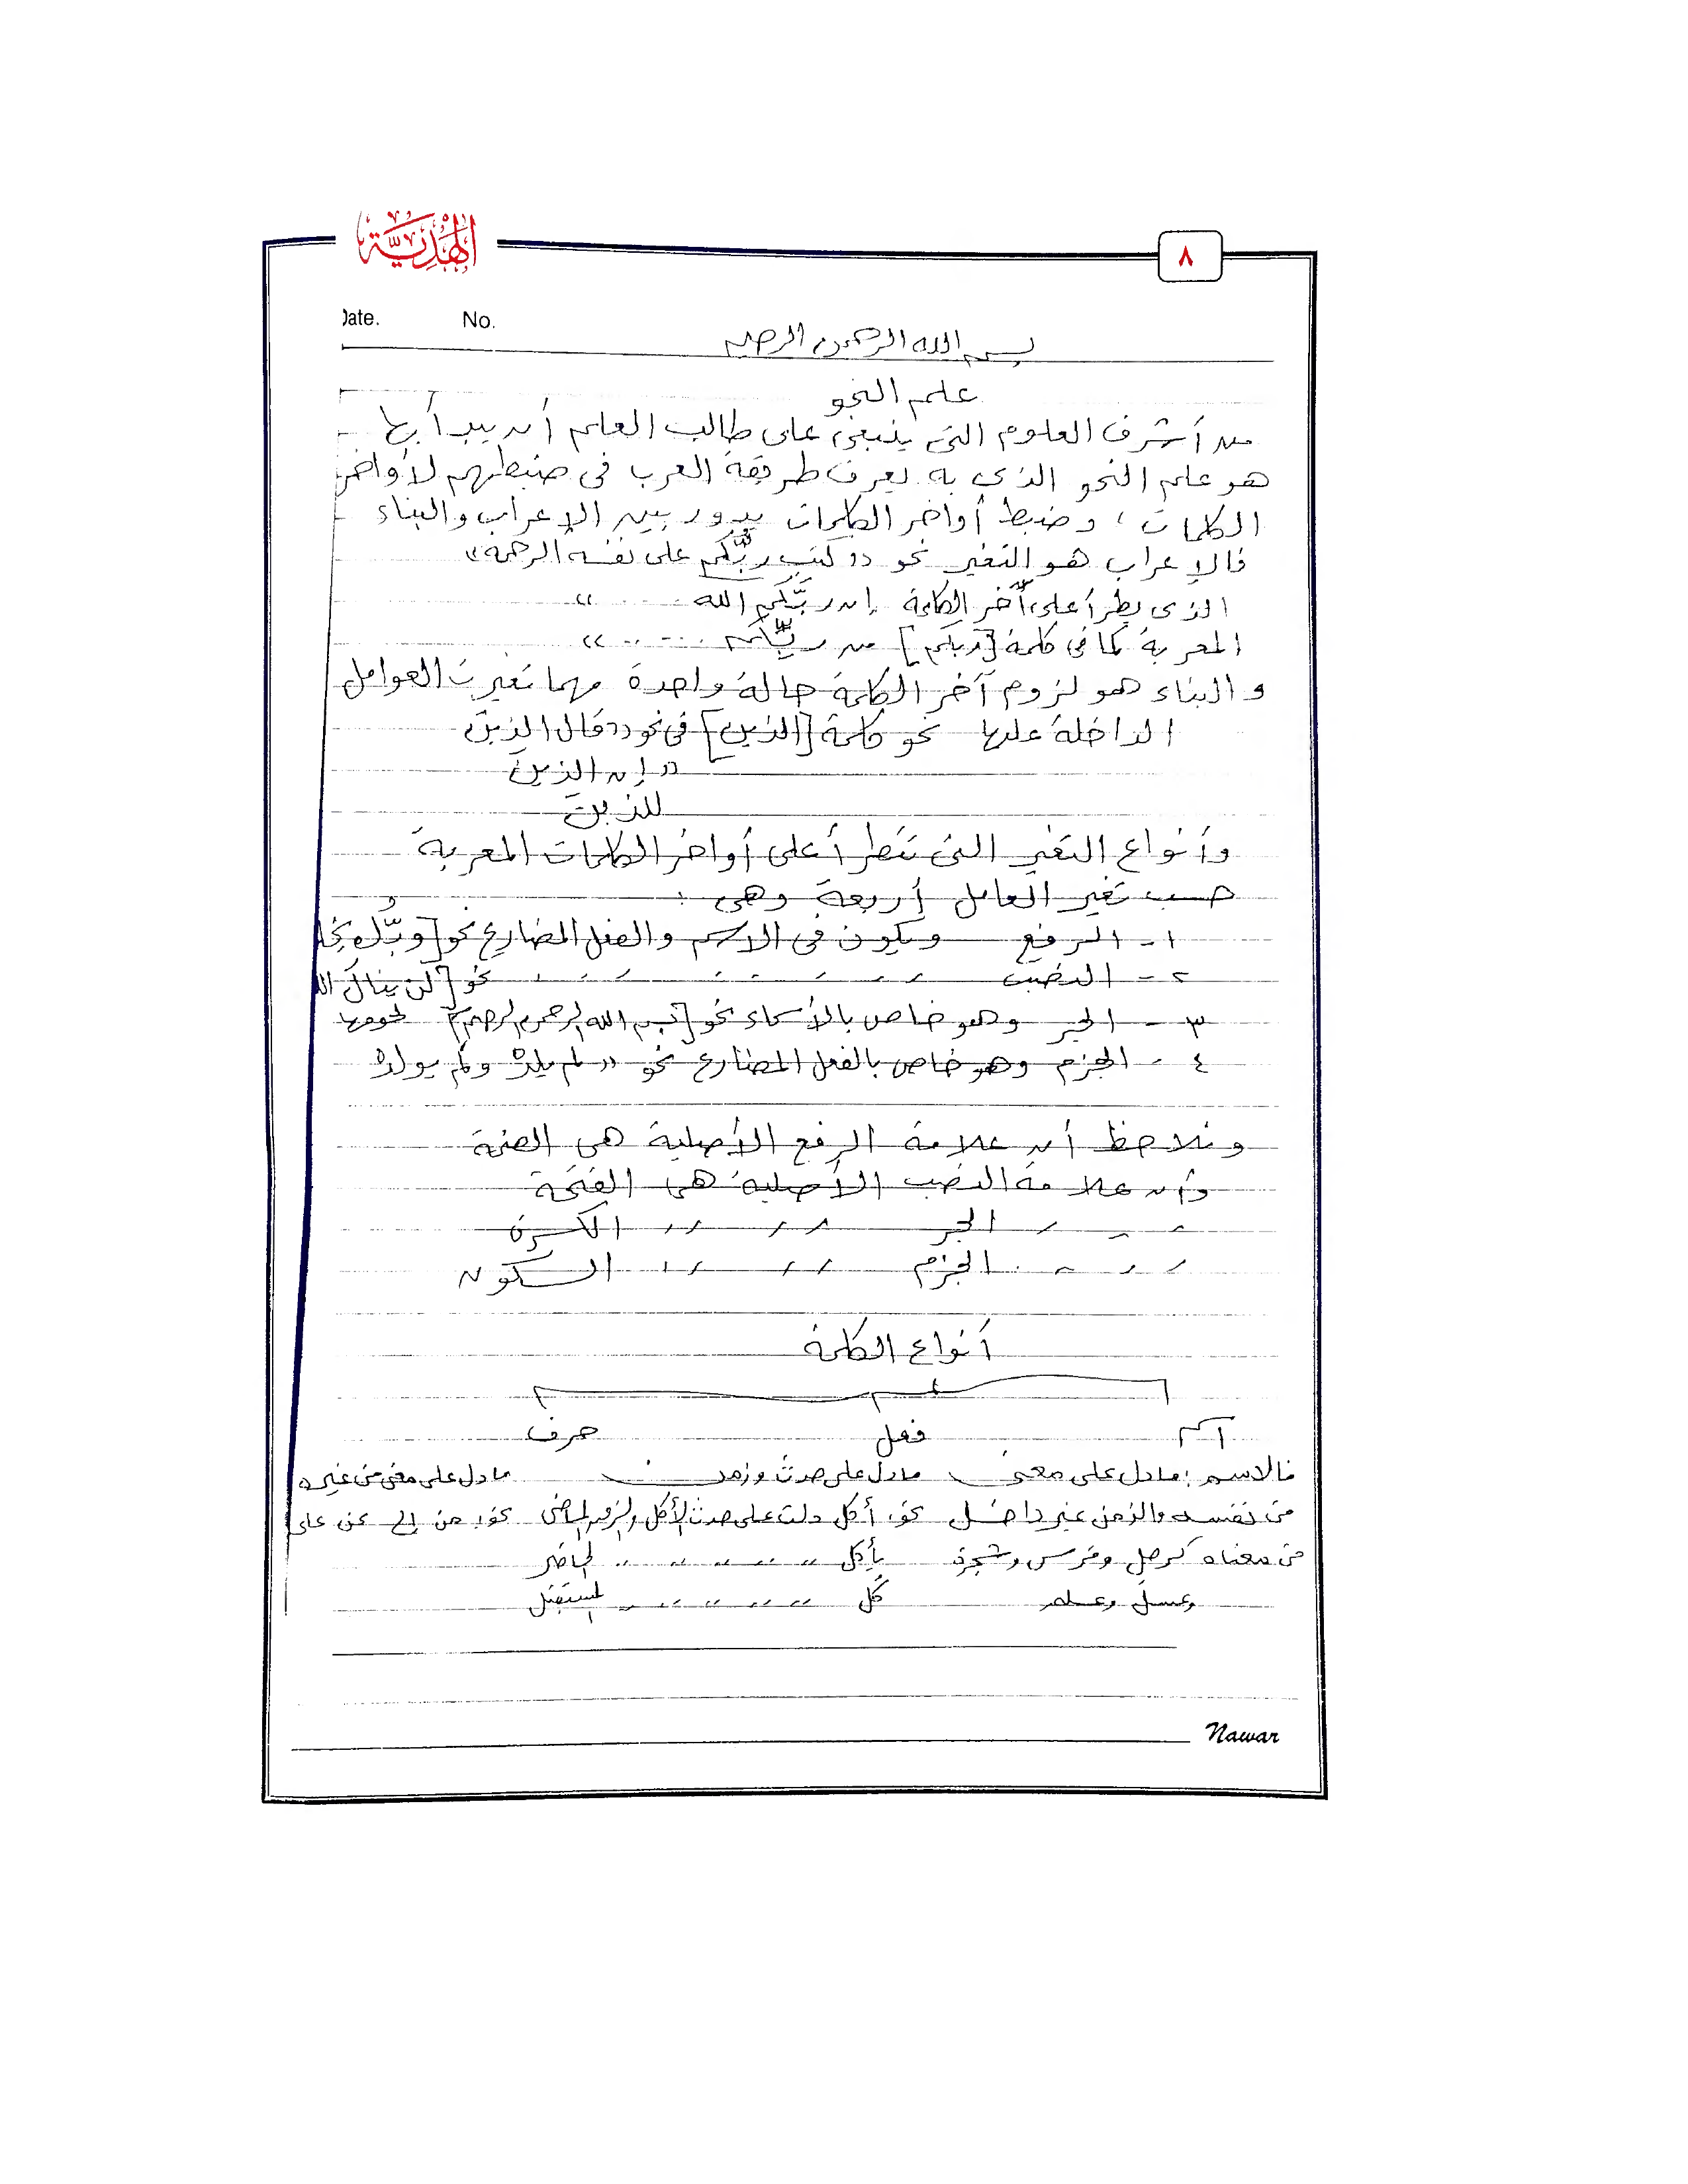 الهدية
٨
Date. No.
بسم الله الرحمن الرحيم
علم النحو
من أشرف العلوم التى ينبغى على طالب العلم أن يبدأ بها
هو علم النحو الذى به يعرف طريقة العرب فى ضبطهم لأواخر
الكلمات، وضبط أواخر الكلمات يدور بين الإعراب والبناء
فالإعراب هو التغير نحو "كتب ربُّكم على نفسه الرحمة"
الذى يطرأ على آخر الكلمة إن ربَّكم الله ...... "
المعربة كما فى كلمة [ربكم] من ربِّكم ...... "
والبناء هو لزوم آخر الكلمة حالة واحدة مهما تغيرت العوامل
الداخلة عليها نحو كلمة [الذين] فى نحو "قال الذينَ
"إن الذينَ
للذينَ
وأنواع التغير التى تطرأ على أواخر الكلمات المعربة
حسب تغير العامل أربعة وهى :
١ - الرفع ويكون فى الاسم والفعل المضارع نحو [وربُّك
٢ - النصب 〃 〃 〃 〃 〃 〃 نحو [لن ينالَ الله
٣ - الجر وهو خاص بالأسماء نحو [بسم الله الرحمن الرحيم] لحومها
٤ - الجزم وهو خاص بالفعل المضارع نحو "لم يلدْ ولم يولدْ
ونلاحظ أن علامة الرفع الأصلية هى الضمة
وأن علامة النصب الأصلية هى الفتحة
〃 〃 الجر 〃 〃 الكسرة
〃 〃 الجزم 〃 〃 السكون
أنواع الكلمة
اسم فعل حرف
فالاسم : مادل على معنى مادل على حدث وزمن مادل على معنى فى غيره
فى نفسه والزمن غير داخل نحو، أكل دلت على حدث الأكل والزمن الماضى نحو: من إلى عن على
فى معناه كرجل وفرس وشجرة يأكل 〃 〃 〃 〃 الحاضر
وعسل وعلم كُل 〃 〃 〃 〃 المستقبل
Nawar